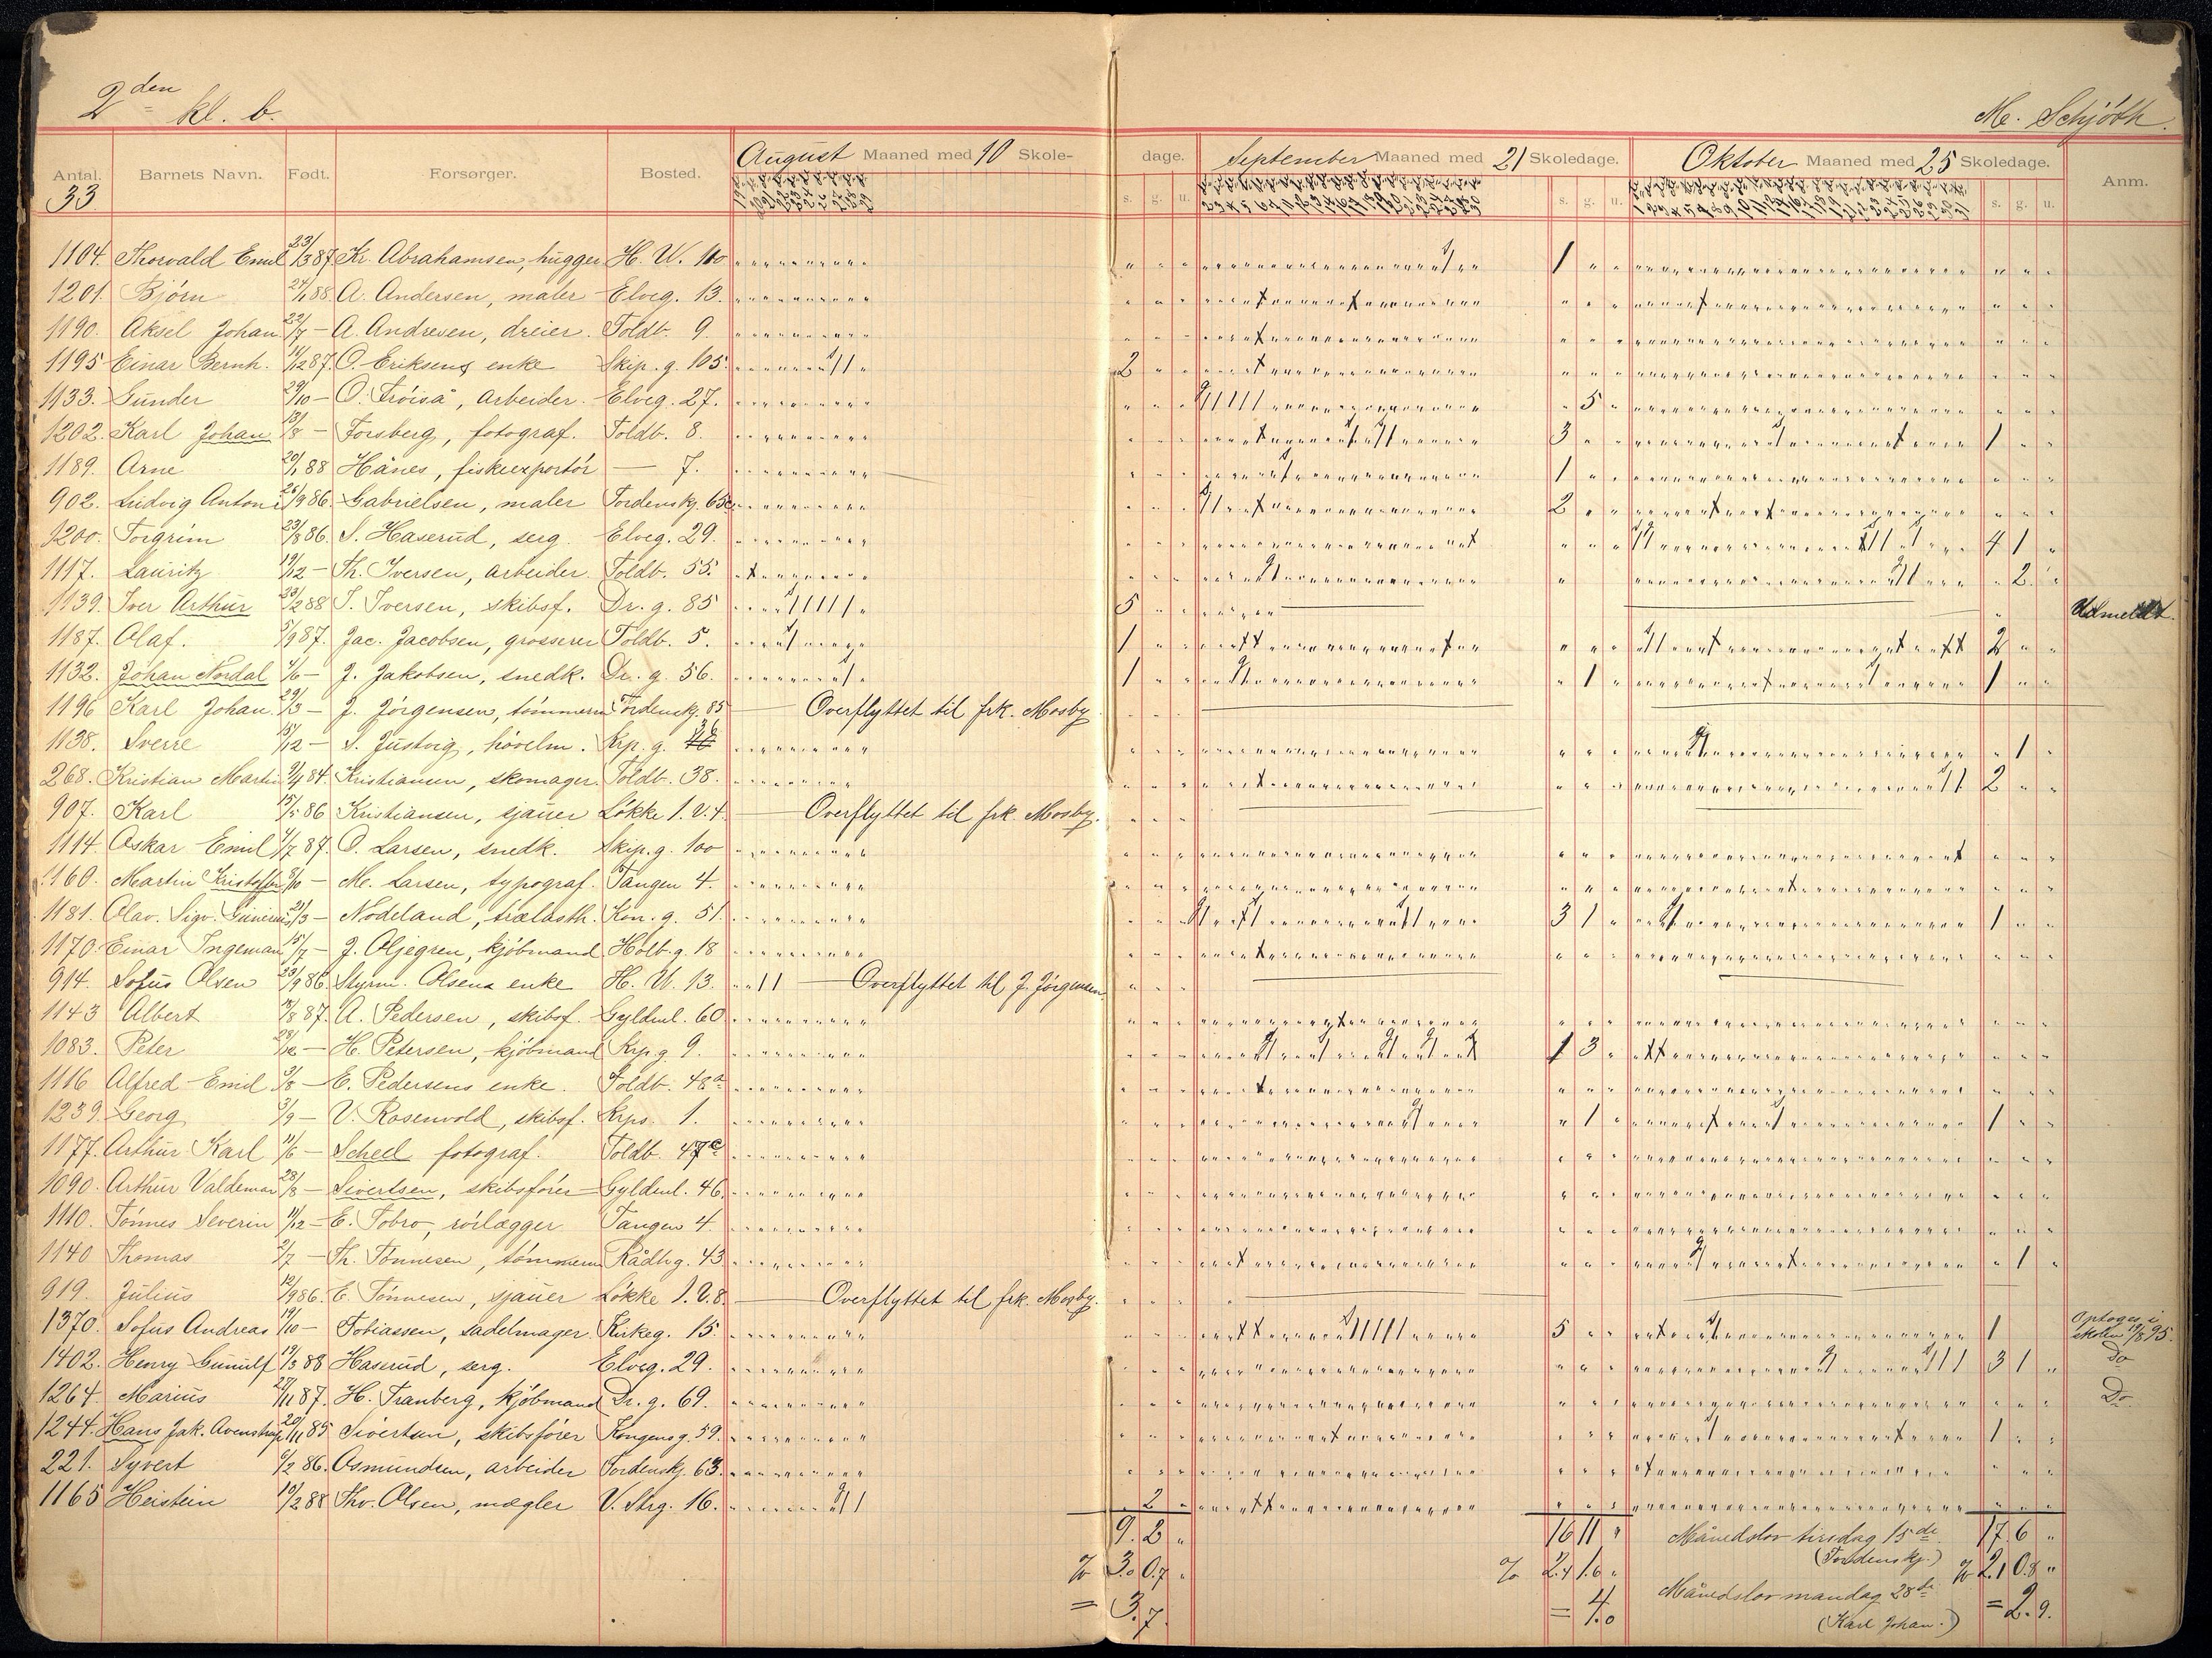 2den kl. b.
M. Schjöth.
Antal. Barnets Navn. Født. Forsørger. Bosted. August Maaned med 10 Skoledage. September Maaned med 21 Skoledage. Oktober Maaned med 25 Skoledage. Anm.
33
s. g. u. s. g. u. s. g. u.
1104. Thorvald Emil 23/3 87. Kr. Abrahamsen, hugger H. W. 110 1
1201. Bjørn 24/1 88. A. Andersen, maler Elveg. 13.
1190. Aksel Johan 22/7 — A. Andresen, dreier. Toldb. 9
1195 Einar Bernh. 14/12 87. O. Eriksens enke Skip. g. 105. 2
1133. Gunder 29/10 — O. Fröiså, arbeider. Elveg. 27. 5
1202. Karl Johan 13/8 — Forsberg, fotograf. Toldb. 8. 3 1
1189. Arne 20/1 88 Hånes, fiskeexportör — 7. 1
902. Ludvig Anton 26/9 86. Gabrielsen, maler Tordenskj. 65c 2
1200. Torgrim 23/8 86. S. Haserud, serg. Elveg. 29. 4 1
1117. Lauritz 19/12 — Th. Iversen, arbeider. Toldb. 55. 2.
1139. Iver Arthur 23/2 88 I. Iversen, skibsf. Dr. g. 85 5 Udmeldt.
1187. Olaf. 5/9 87. Jac. Jacobsen, grosserer Toldb. 5. 1 2
1132. Johan Nordal 4/6 — J. Jakobsen, snedk. Dr. g. 56. 1 1 1
1196 Karl Johan. 29/3 — J. Jörgensen, tömmerm Tordenskj. 85 — Overflyttet til frk. Mosby
1138. Sverre 18/12 — S. Justvig, hövelm. Krp. g. 36 1
268. Kristian Martin 9/4 84. Kristiansen, skomager. Toldb. 38. 2
907. Karl 15/5 86 Kristiansen, sjauer Løkke 1. V. 4. — Overflyttet til frk. Mosby.
1114. Oskar Emil 4/7 87. O. Larsen, snedk. Skip. g. 100
1160. Martin Kristoffer 8/10 — M. Larsen, typograf. Tangen 4.
1181. Olav. Sigv. 21/3 — Nodeland, trælasth. Kon. g. 51. 3 1 1
1170. Einar Ingeman 15/7 — J. Oljegren, kjöbmand Holb. g. 18
914. Sofus Olsen 23/9 86. Styrm. Olsens enke H. W. 13. — Overflyttet til J. Jørgensen.
1143 Albert 12/8 87. A. Pedersen, skibsf. Gyldenl. 60
1083. Peter 28/12 — H. Petersen, kjöbmand Krp. g. 9. 1 3
1116 Alfred Emil 9/8 — E. Pedersens enke. Toldb. 48a
1239. Georg 3/9 — V. Rosenvold, skibsf. Krps. 1. 1 1
1177. Arthur Karl 11/6 — Scheel fotograf. Toldb. 47c
1090. Arthur Valdemar 28/8 — Sivertsen, skibsförer Gyldenl. 46.
1110. Tönnes Severin 11/12 — E. Tobro, rörlægger Tangen 4.
1140 Thomas 2/7 — Th. Tönnesen, tömmerm Rådhg. 43 1
919. Julius 12/9 86. E. Tönnesen, sjauer Løkke 1. V. 8. — Overflyttet til frk. Mosby.
1370. Sofus Andreas 19/10 — Tobiassen, sadelmager. Kirkeg. 15. 5 1 Optages i skolen 19/8 95.
1402. Henry Gunulf 19/3 88 Haserud, serg. Elveg. 29. 3 1 Do
1264. Marius 27/11 87. H. Tranberg, kjöbmand Dr. g. 69. Do.
1244. Hans Jak. Avenstrup 20/11 85 Sivertsen, skibsförer Kongensg. 59. 1
221. Syvert 6/2 86. Osmundsen, arbeider Tordenskj. 63.
1165 Heistein 19/2 88 Thv. Olsen, mægler V. Strg. 16. 2
9. 2 16 11 Månedslov tirsdag 15de (Tordenskj.) 17. 6
% 3.0 0.7 % 2.4 1.6 Månedslov mandag 28de (Karl Johan.) % 2.1 0.8
= 3.7 = 4.0 = 2.9.